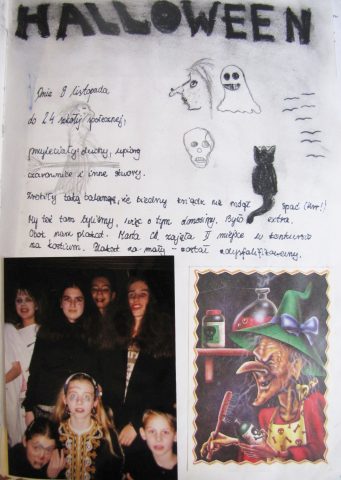 HALLOWEEN
Dnia 8 listopada
do 24 szkoły społecznej,
przyleciały duchy, upiory
czarownice i inne stwory.
Zrobiły taką balangę, że biedny książę nie mógł spać (Hrr!)
My też tam byliśmy, więc o tym donosimy. Było extra.
Obok nasz plakat. Marta Ch. zajęła II miejsce w konkursie
na kostium. Plakat za mały - został zdyskalifikowany.